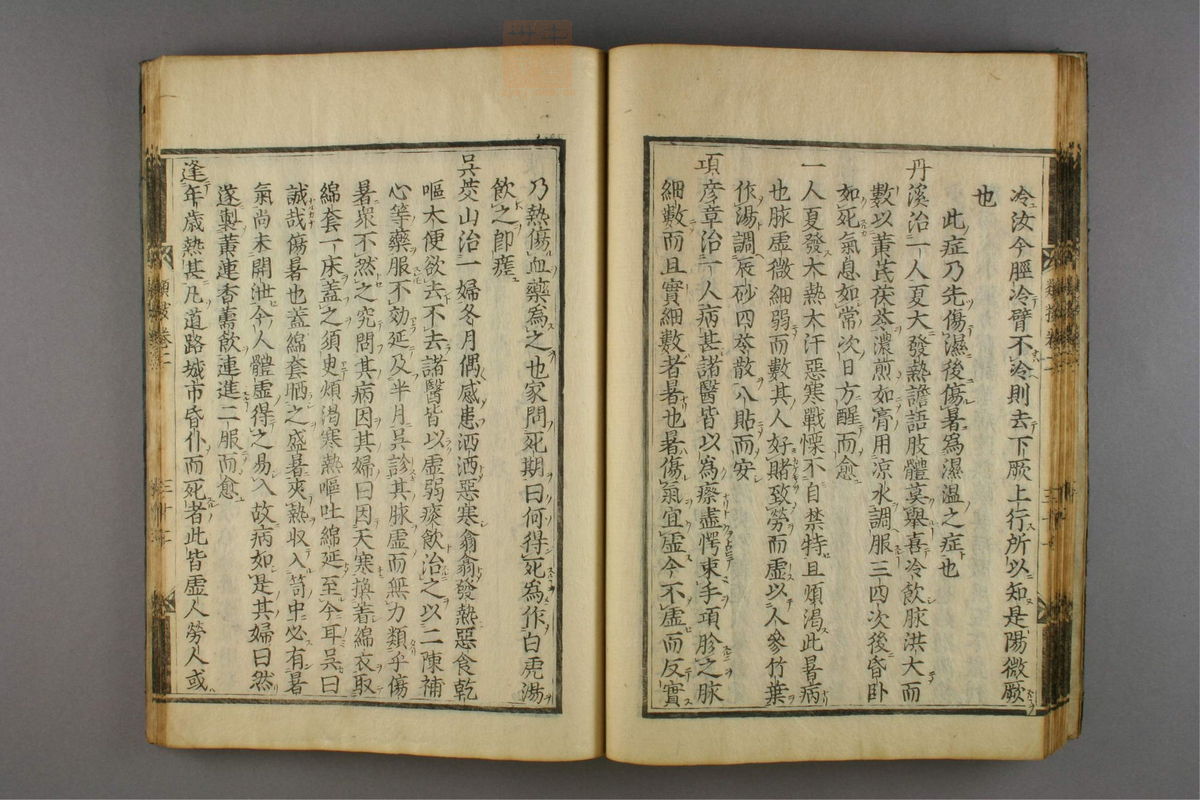 冷汝今脛冷臂不冷則去下厥上行所以知是陽微厥
也
此症乃先傷濕後傷暑為濕溫之症也
丹溪治一人夏大發熱譫語肢體莫舉喜冷飲脉洪大而
數以黃芪茯苓濃煎如膏用凉水調服三四次後昏卧
如死氣息如常次日方醒而愈
一人夏發大熱大汗惡寒戰慄不自禁特且煩渴此暑病
也脉虛微細弱而數其人好賭致勞而虛以人參竹葉
作湯調辰砂四苓散八貼而安
項彥章治一人病甚諸醫皆以為瘵盡愕束手項診之脉
細數而且實細數者暑也暑傷氣宜虛今不虛而反實
乃熱傷血藥為之也家問死期曰何得死為作白虎湯
飲之即瘥
吳茭山治一婦冬月偶感患洒洒惡寒翕翕發熱惡食乾
嘔大便欲去不去諸醫皆以虛弱痰飲治之以二陳補
心等藥服不効延及半月吳診其脉虛而無力類乎傷
暑衆不然之究問其病因其婦曰因天寒換着綿衣取
綿套一床蓋之須臾煩渴寒熱嘔吐綿延至今耳吳曰
誠哉傷暑也蓋綿套晒之盛暑夾熱收入笥中必有暑
氣尚未開泄今人體虛得之易入故病如是其婦曰然
遂製黃連香薷飲連進二服而愈
逢年歲熱甚凡道路城市昏仆而死者此皆虛人勞人或